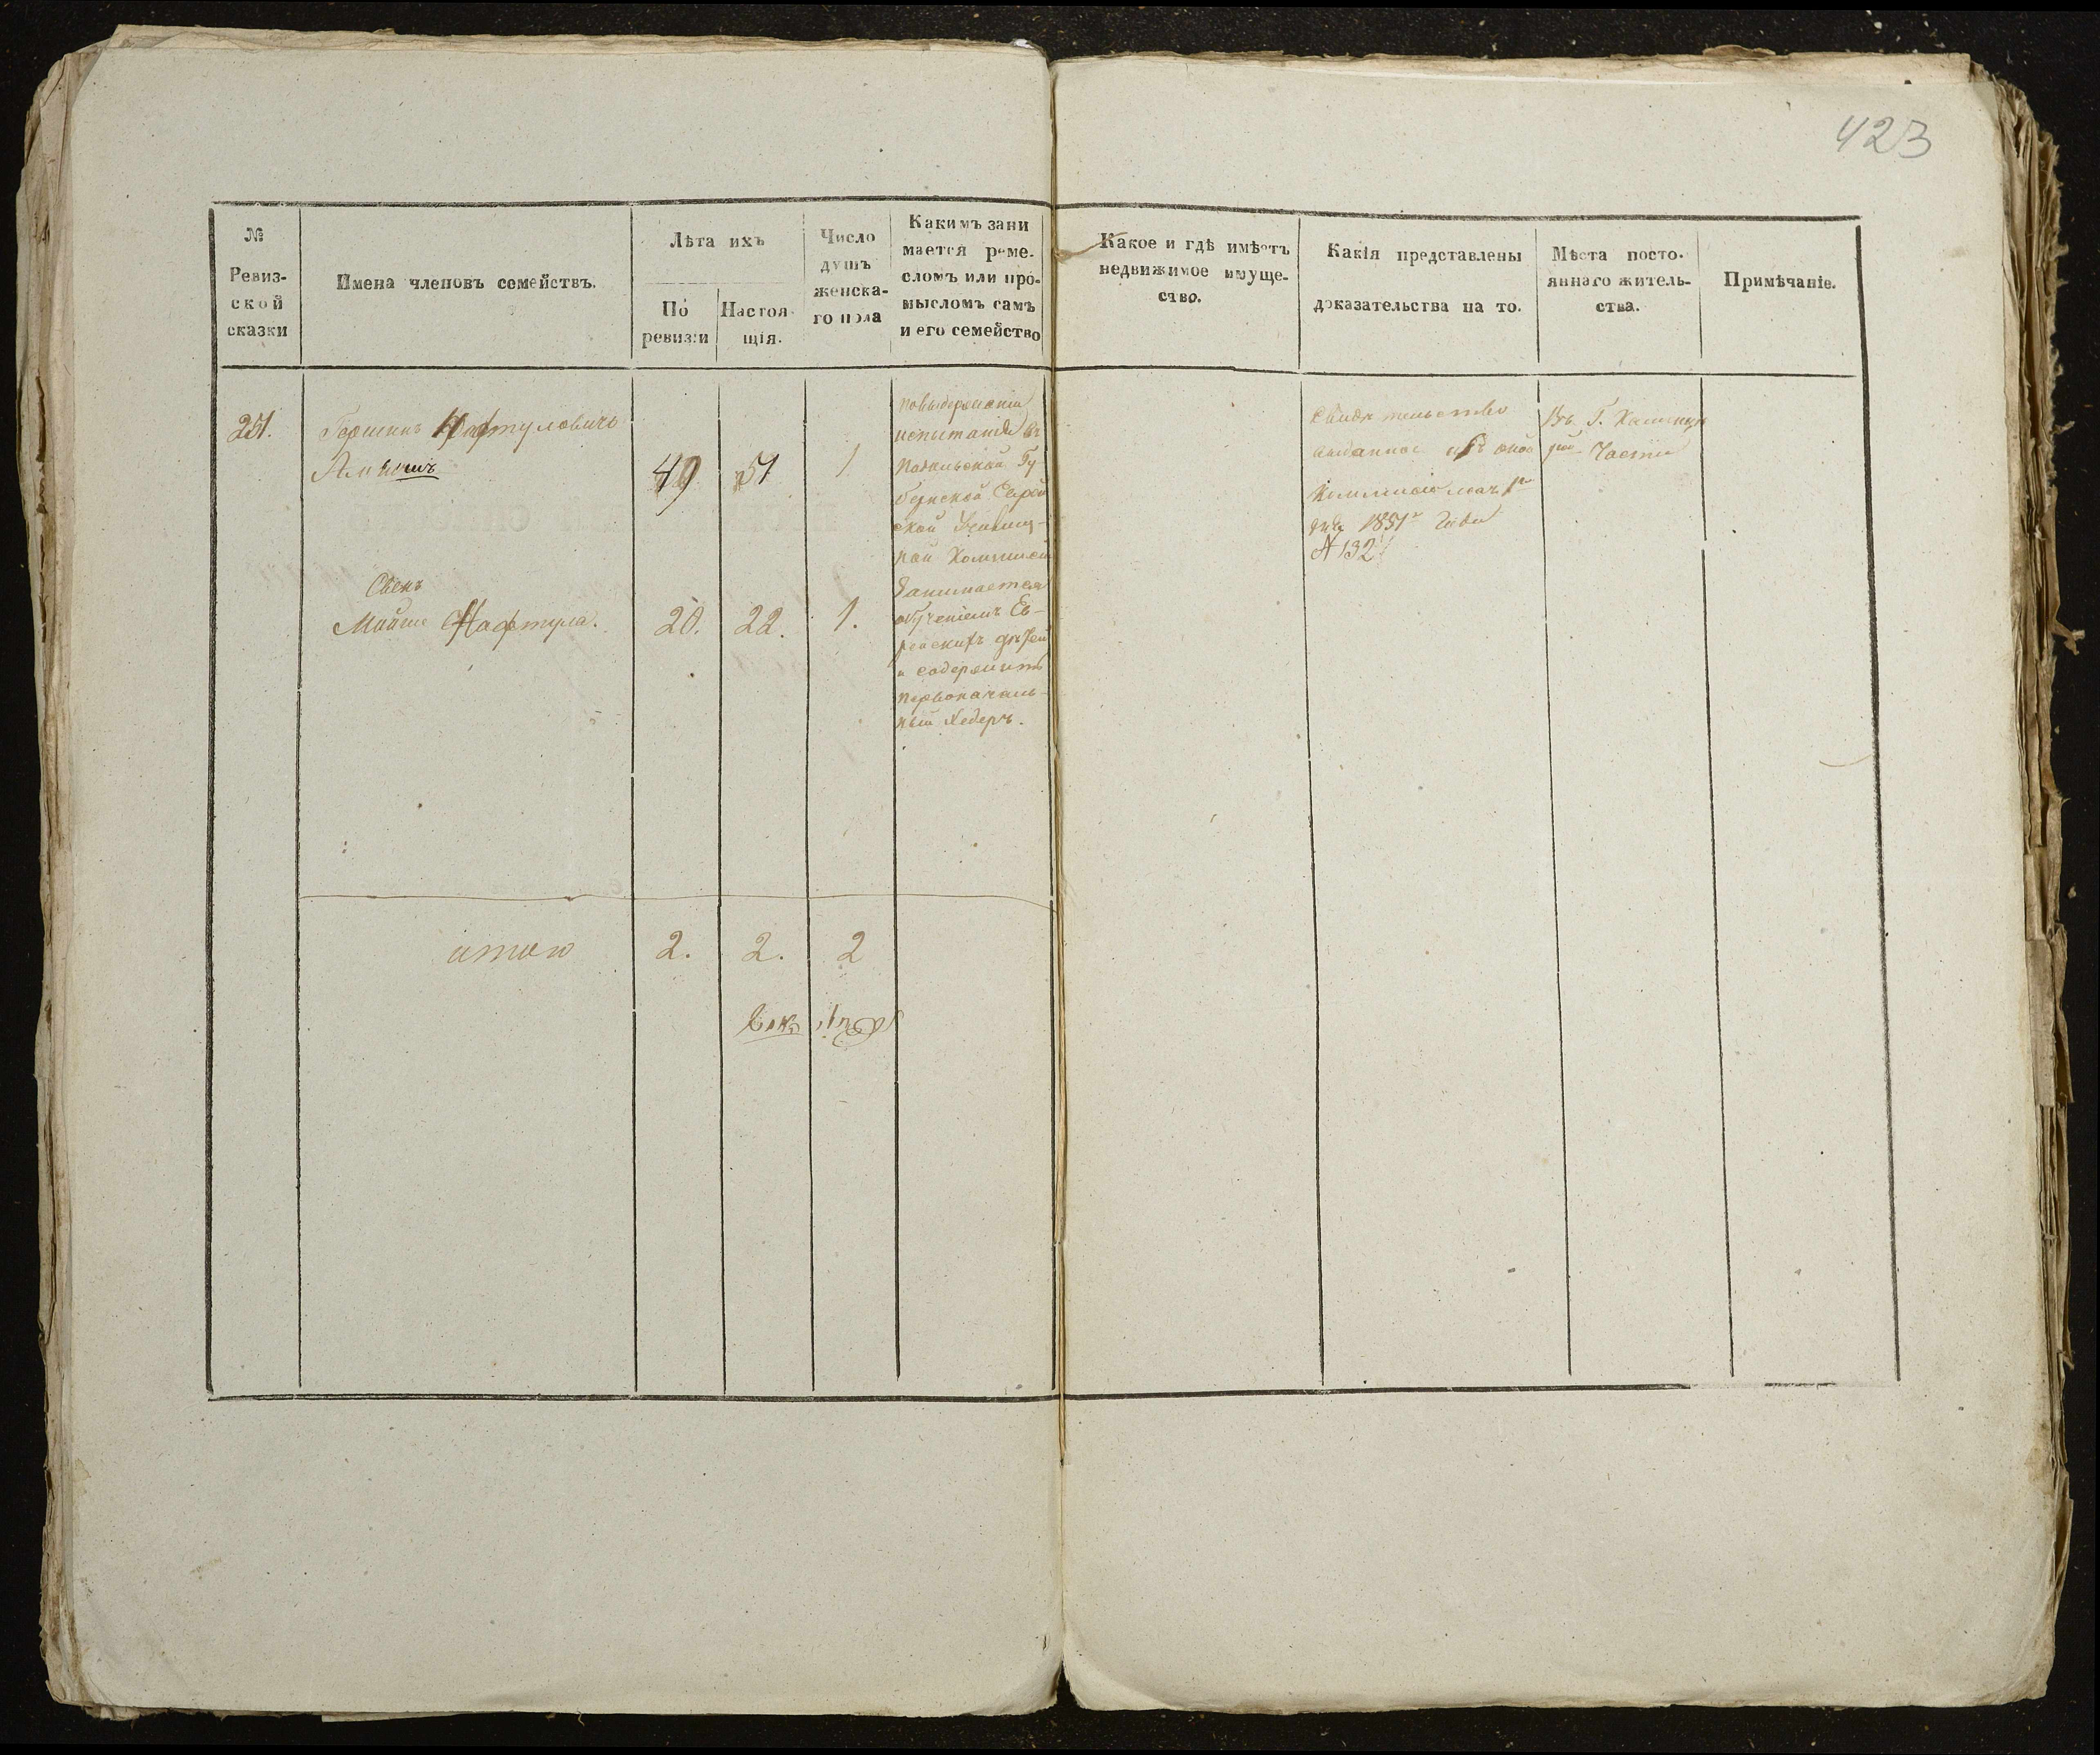 423
№
Ревиз-
ской
сказки
Имена членовъ семействъ.
Лѣта ихъ
По
ревизіи
Настоя-
щія.
Число
душъ
женска-
го пола
Какимъ зани
мается реме-
сломъ или про-
мысломъ самъ
и его семейство
Какое и гдѣ имѣетъ
недвижимое имуще-
ство.
Какія представлены
доказательства на то.
Мѣста посто-
яннаго житель-
ства.
Примѣчаніе.
251.
Гершинъ Нафтуловичъ
49
51
1
Сынъ
Мойше Нафтула.
20.
22.
1.
по выдержаніи
испытанія въ
Подольской Гу
бернской Еврей
ской Училищ-
ной Коммисіи
Занимается
обученіемъ Ев-
рейскихъ дѣтей
и содержитъ
первоначаль-
ный Хедеръ.
Свидѣтельство
выданное изъ оной
Коммисіи
1851 года
№ 132
Въ Г.
Части
итого
2.
2.
2